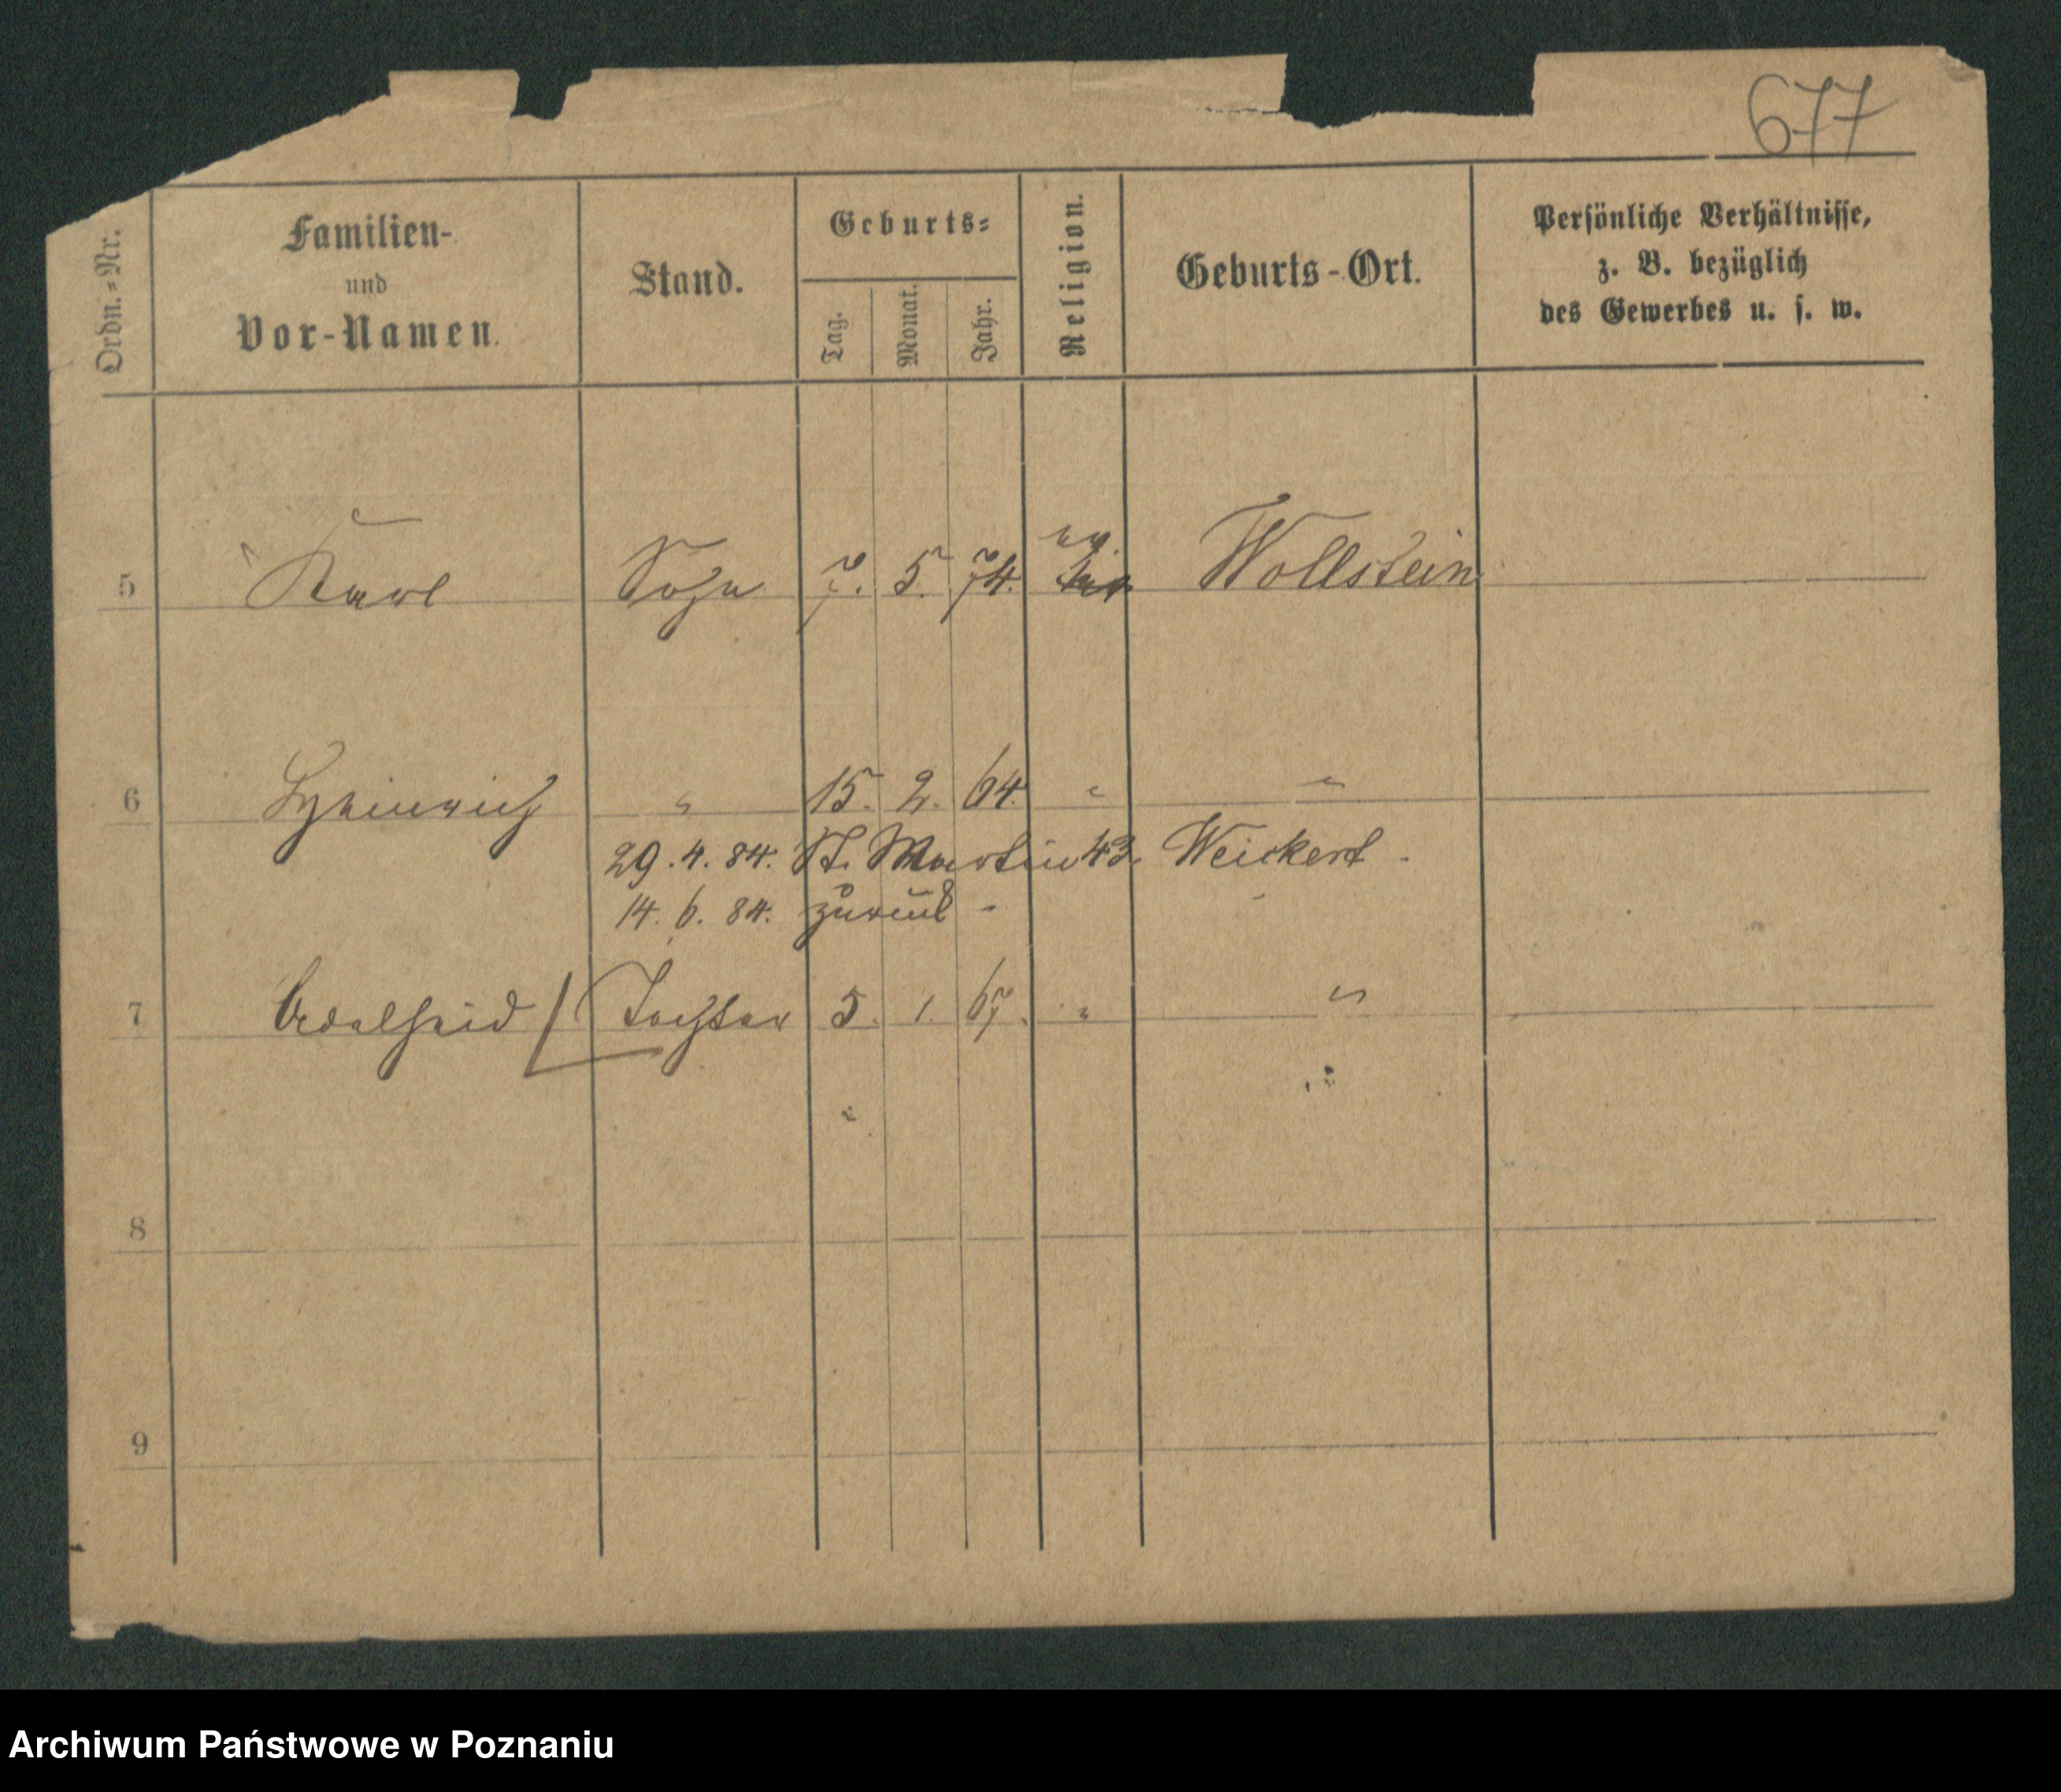 677
Ordn.=Nr.
Familien-
und
Vor-Namen.
Stand.
Geburts=
Tag.
Monat.
Jahr.
Religion.
Geburts-Ort.
Persönliche Verhältnisse,
z. B. bezüglich
des Gewerbes u. s. w.
ev.
5 Karl Sohn 7. 5. 74. Wollstein
6 Heinrich " 15. 2. 64. " "
29. 4. 84. St. Martin 43. Weickert.
14. 6. 84. zurück -
7 Adelheid Tochter 5. 1. 67. " "
8
9
Archiwum Państwowe w Poznaniu